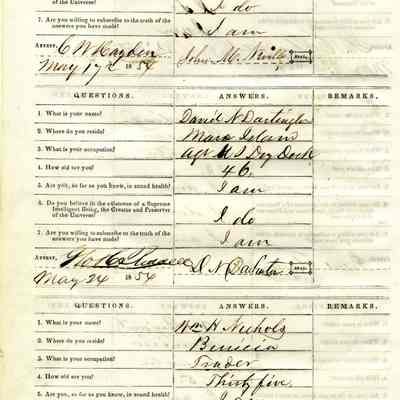 of the Universe?
I do
7. Are you willing to subscribe to the truth of the
answers you have made?
I am
ATTEST, C W Hayden John M.
May 17th 1854
SEAL.
QUESTIONS. ANSWERS. REMARKS.
1. What is your name? David N Darlington
2. Where do you reside? Mare Island
3. What is your occupation? Agt U S Dry Dock
4. How old are you? 46.
5. Are you, so far as you know, in sound health? I am
6. Do you believe in the existence of a Supreme
Intelligent Being, the Creator and Preserver
of the Universe? I do
7. Are you willing to subscribe to the truth of the
answers you have made? I am
ATTEST, D N Darlington SEAL.
May 24 1854
QUESTIONS. ANSWERS. REMARKS.
1. What is your name? Wm H Nichols
2. Where do you reside? Benicia
3. What is your occupation? Trader
4. How old are you? Thirty five.
5. Are you, so far as you know, in sound health? I